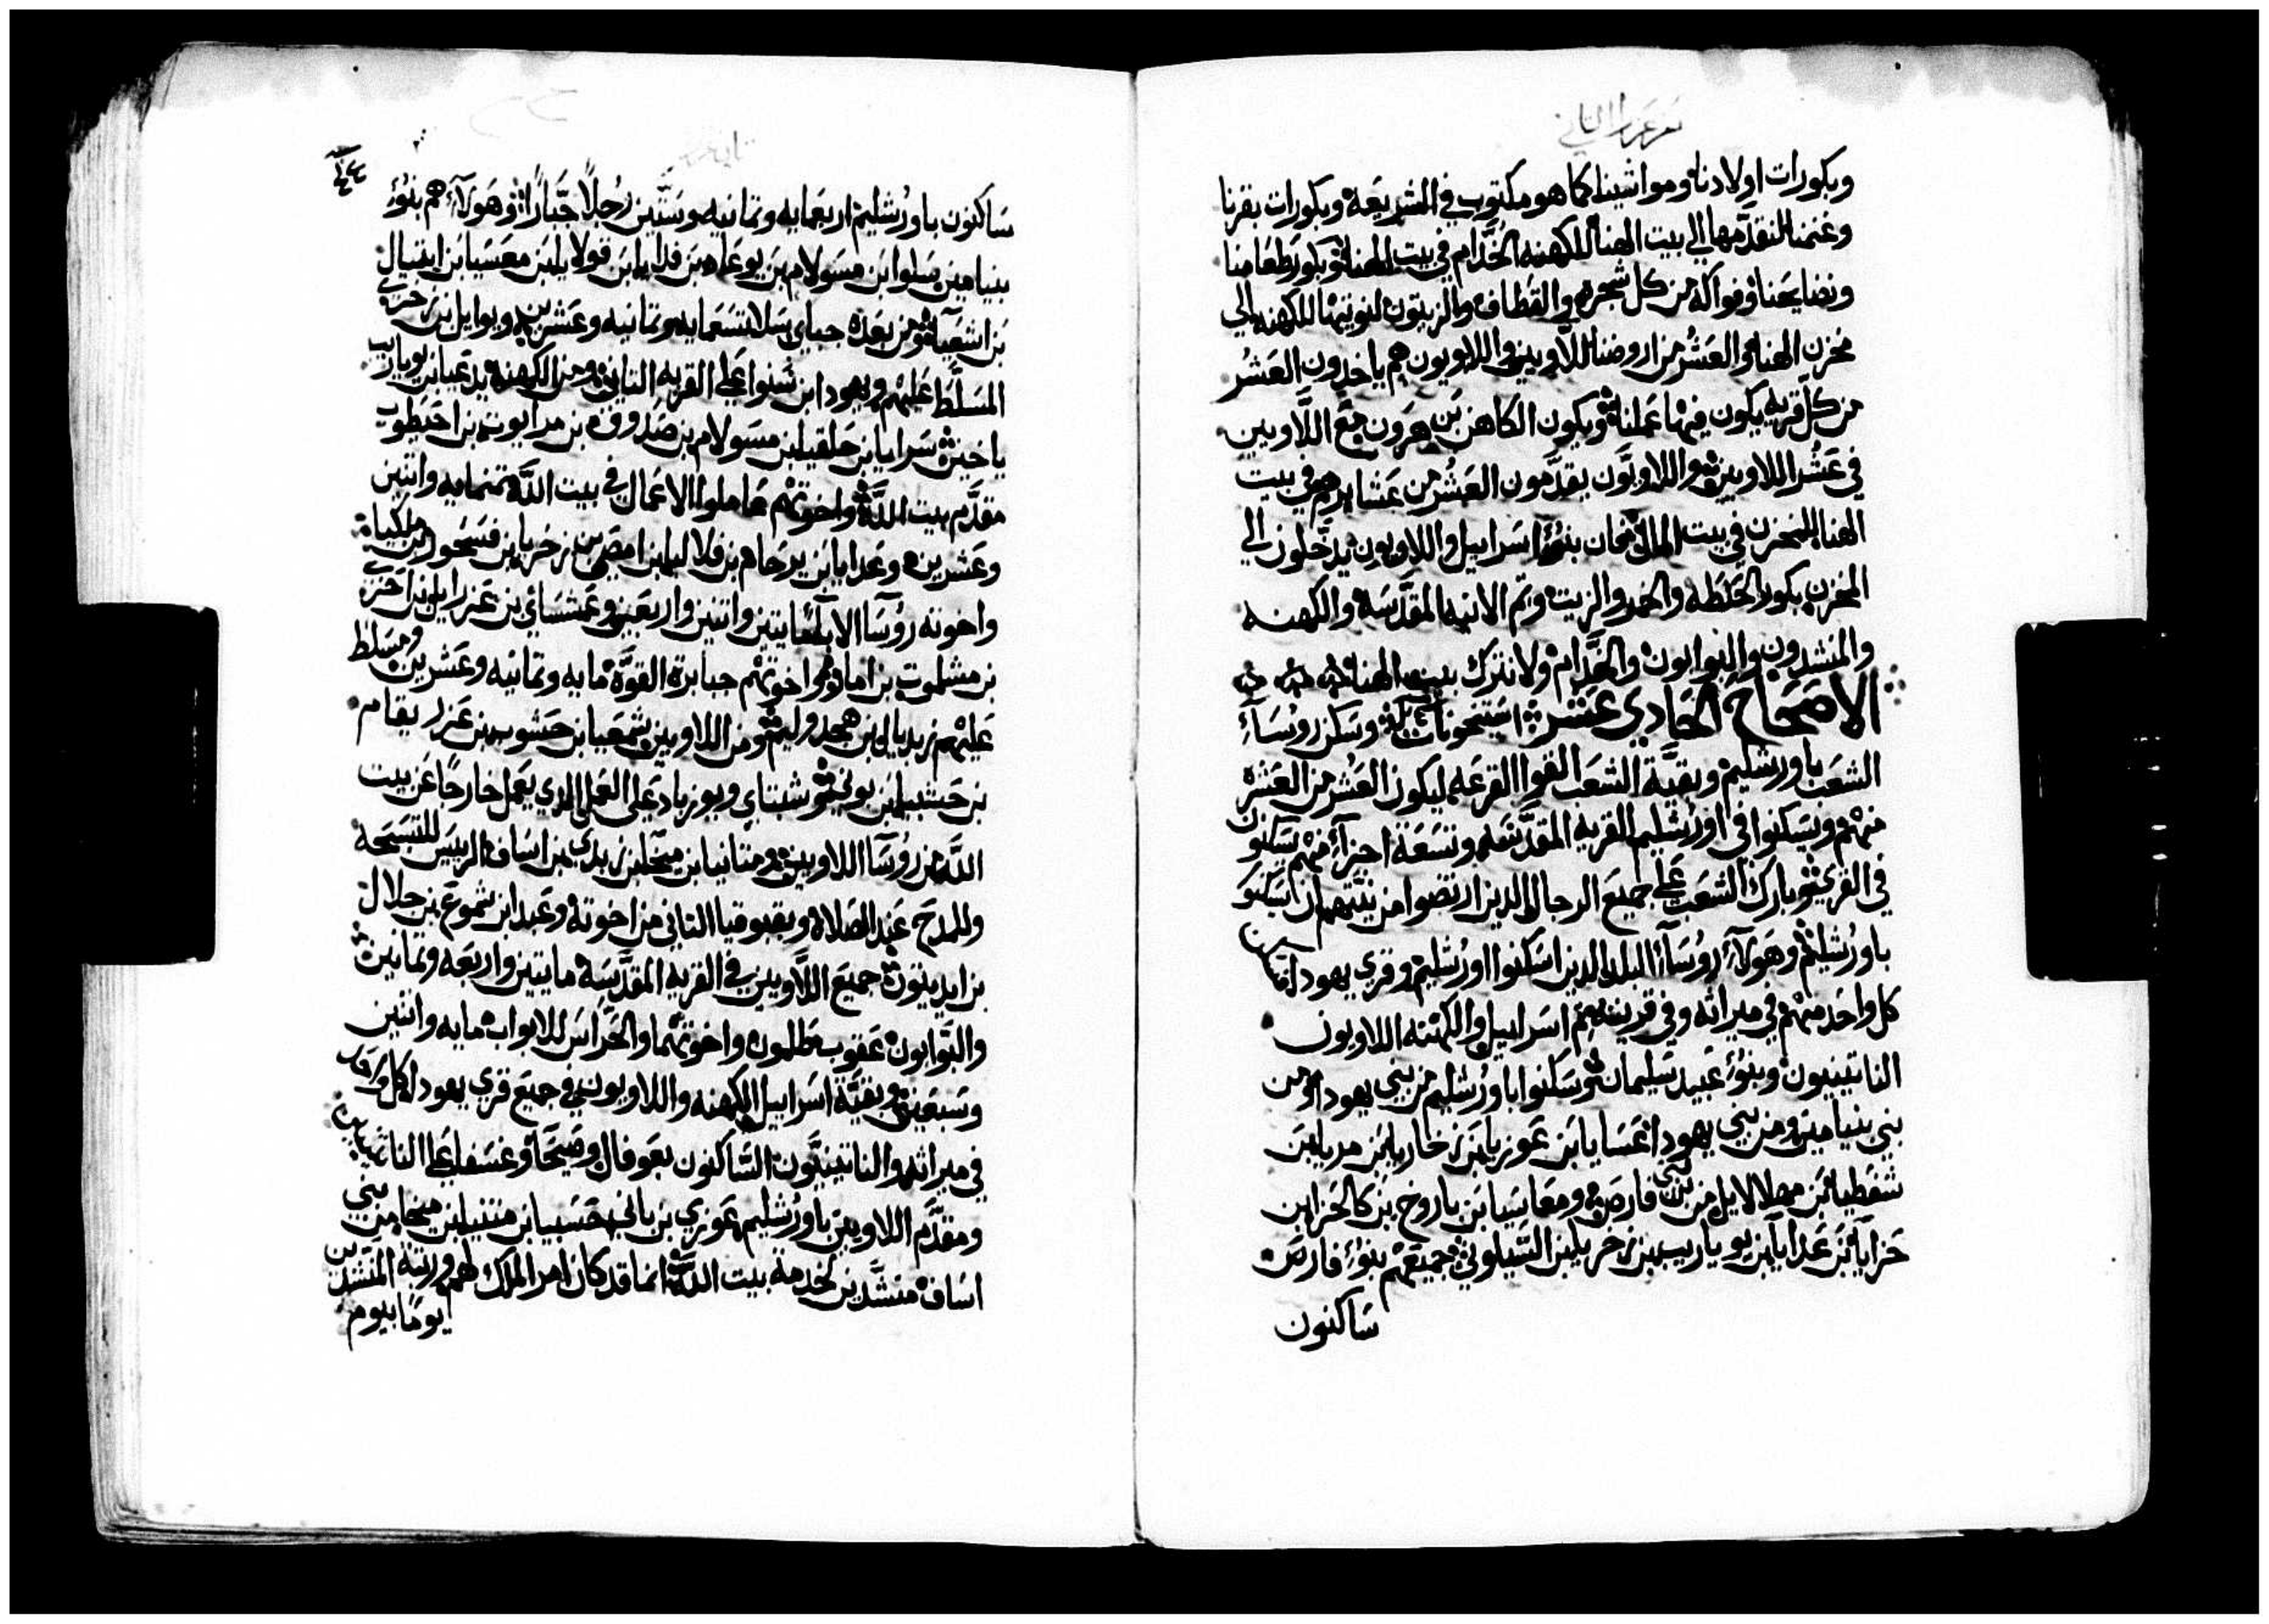 سفر عزرا الثاني
وبكورات اولادنا ومواشينا كما هو مكتوب في الشريعة وبكورات بقرنا
وغنمنا لنقدمها الي بيت الهنا للكهنه الخدام في بيت الهنا وبكور طعامنا
ونضايحنا وفواكه من كل شجره والقطاف والزيتون لنوتيها للكهنه الي
مخزن الهنا والعشر من اروضنا للاويين واللاويون هم ياخدون العشر
من كل قريه يكون فيها عملنا ويكون الكاهن بن هرون مع اللاويين
في عشر اللاويين واللاويون يقدمون العشر من عشايرهم في بيت
الهنا للمخزن في بيت المال فان بنوا اسراييل واللاويون يدخلون الي
المخزن بكور الحنطه والخمر والزيت وتم الانيه المقدسه والكهنه
والمنشدون والبوابون والخدام ولا نترك بيت الهنا
الاصحاح الحادي عشر وسكن روساء
الشعب باورشليم وبقية الشعب القوا القرعه ليكون العشر من العشره
منهم ويسكنوا في اورشليم القريه المقدسه وتسعة اجزاء منهم يسكنون
في القري وبارك الشعب علي جميع الرجال الدين ارتضوا من نيتهم ان يسكنوا
باورشليم وهولاء روساء البلد الدين اسكنوا اورشليم وقري يهودا
كل واحد منهم في ميراثه وفي قريتهم اسراييل والكهنه اللاويون
الناتينيون وبنوا عبيد سليمان وسكنوا باورشليم من بني يهودا ومن
بني بنيامين ومن بني يهودا عسايا بن عوزيا بن زخاريا بن مريا بن
شفطيا بن مهلالايل من بني فارص ومعاسيا بن باروخ بن كالحزا بن
حزايا بن عدايا بن يوياريب بن زخريا بن الشيلوني جميعهم بنوا فارس
ساكنون
ساكنون باورشليم اربعمايه وثمانيه وستين رجلا جبارا وهولاء هم بنوا
بنيامين سلوا بن مسولام بن يوعاد بن فدايا بن قولايا بن معسيا بن ايتيال
بن اشعيا ومن بعده جباي سلا تسعمايه وثمانيه وعشرين ويوايل بن زخري
المسلط عليهم ويهودا بن سنوا علي القريه الثانيه ومن الكهنه يدعيا بن يوياريب
ياخين سرايا بن حلقيا بن مسولام بن صدوق بن مرايوت بن احيطوب
مقدم بيت الله واخوتهم عاملوا الاعمال في بيت الله ثمنمايه واثنين
وعشرين وعدايا بن يرحام بن فلاليا بن امصي بن زخريا بن فسحور بن ملكيا
واخوته روسا الابا مايتين واثنين واربعين وعمشساي بن عزرايل بن احزي
بن مشلموت بن امار واخوتهم جبابرة القوه مايه وثمانيه وعشرين ومسلط
عليهم زبديال بن هجدوليم ومن اللاويين شمعيا بن حشوب بن عزريقام
بن حشبيا بن بوني وشبتاي ويوزباد علي العمل الذي يعمل خارجا عن بيت
الله من روسا اللاويين ومتانيا بن ميخا بن زبدي بن اساف الرييس للتسبحه
وللمدح عند الصلاه وبقبوقيا الثاني من اخوته وعبدا بن شموع بن جلال
بن ايديتون جميع اللاويين في القريه المقدسه مايتين واربعه وثمانين
والبوابون عقوب طلمون واخوتهما والحراس للابواب مايه واثنين
وسبعين وبقية اسراييل الكهنه واللاويون في جميع قري يهودا كل واحد
في ميراثه والناتينيون الساكنون بعوفال وصيحا وغسفا علي الناتينيين
ومقدم اللاويين باورشليم عوزي بن باني بن حسبيا بن متنيا بن ميخا من بني
اساف منشدين لخدمة بيت الله انما قد كان امر الملك لهم ورتبة المنشدين
يوما بيوم